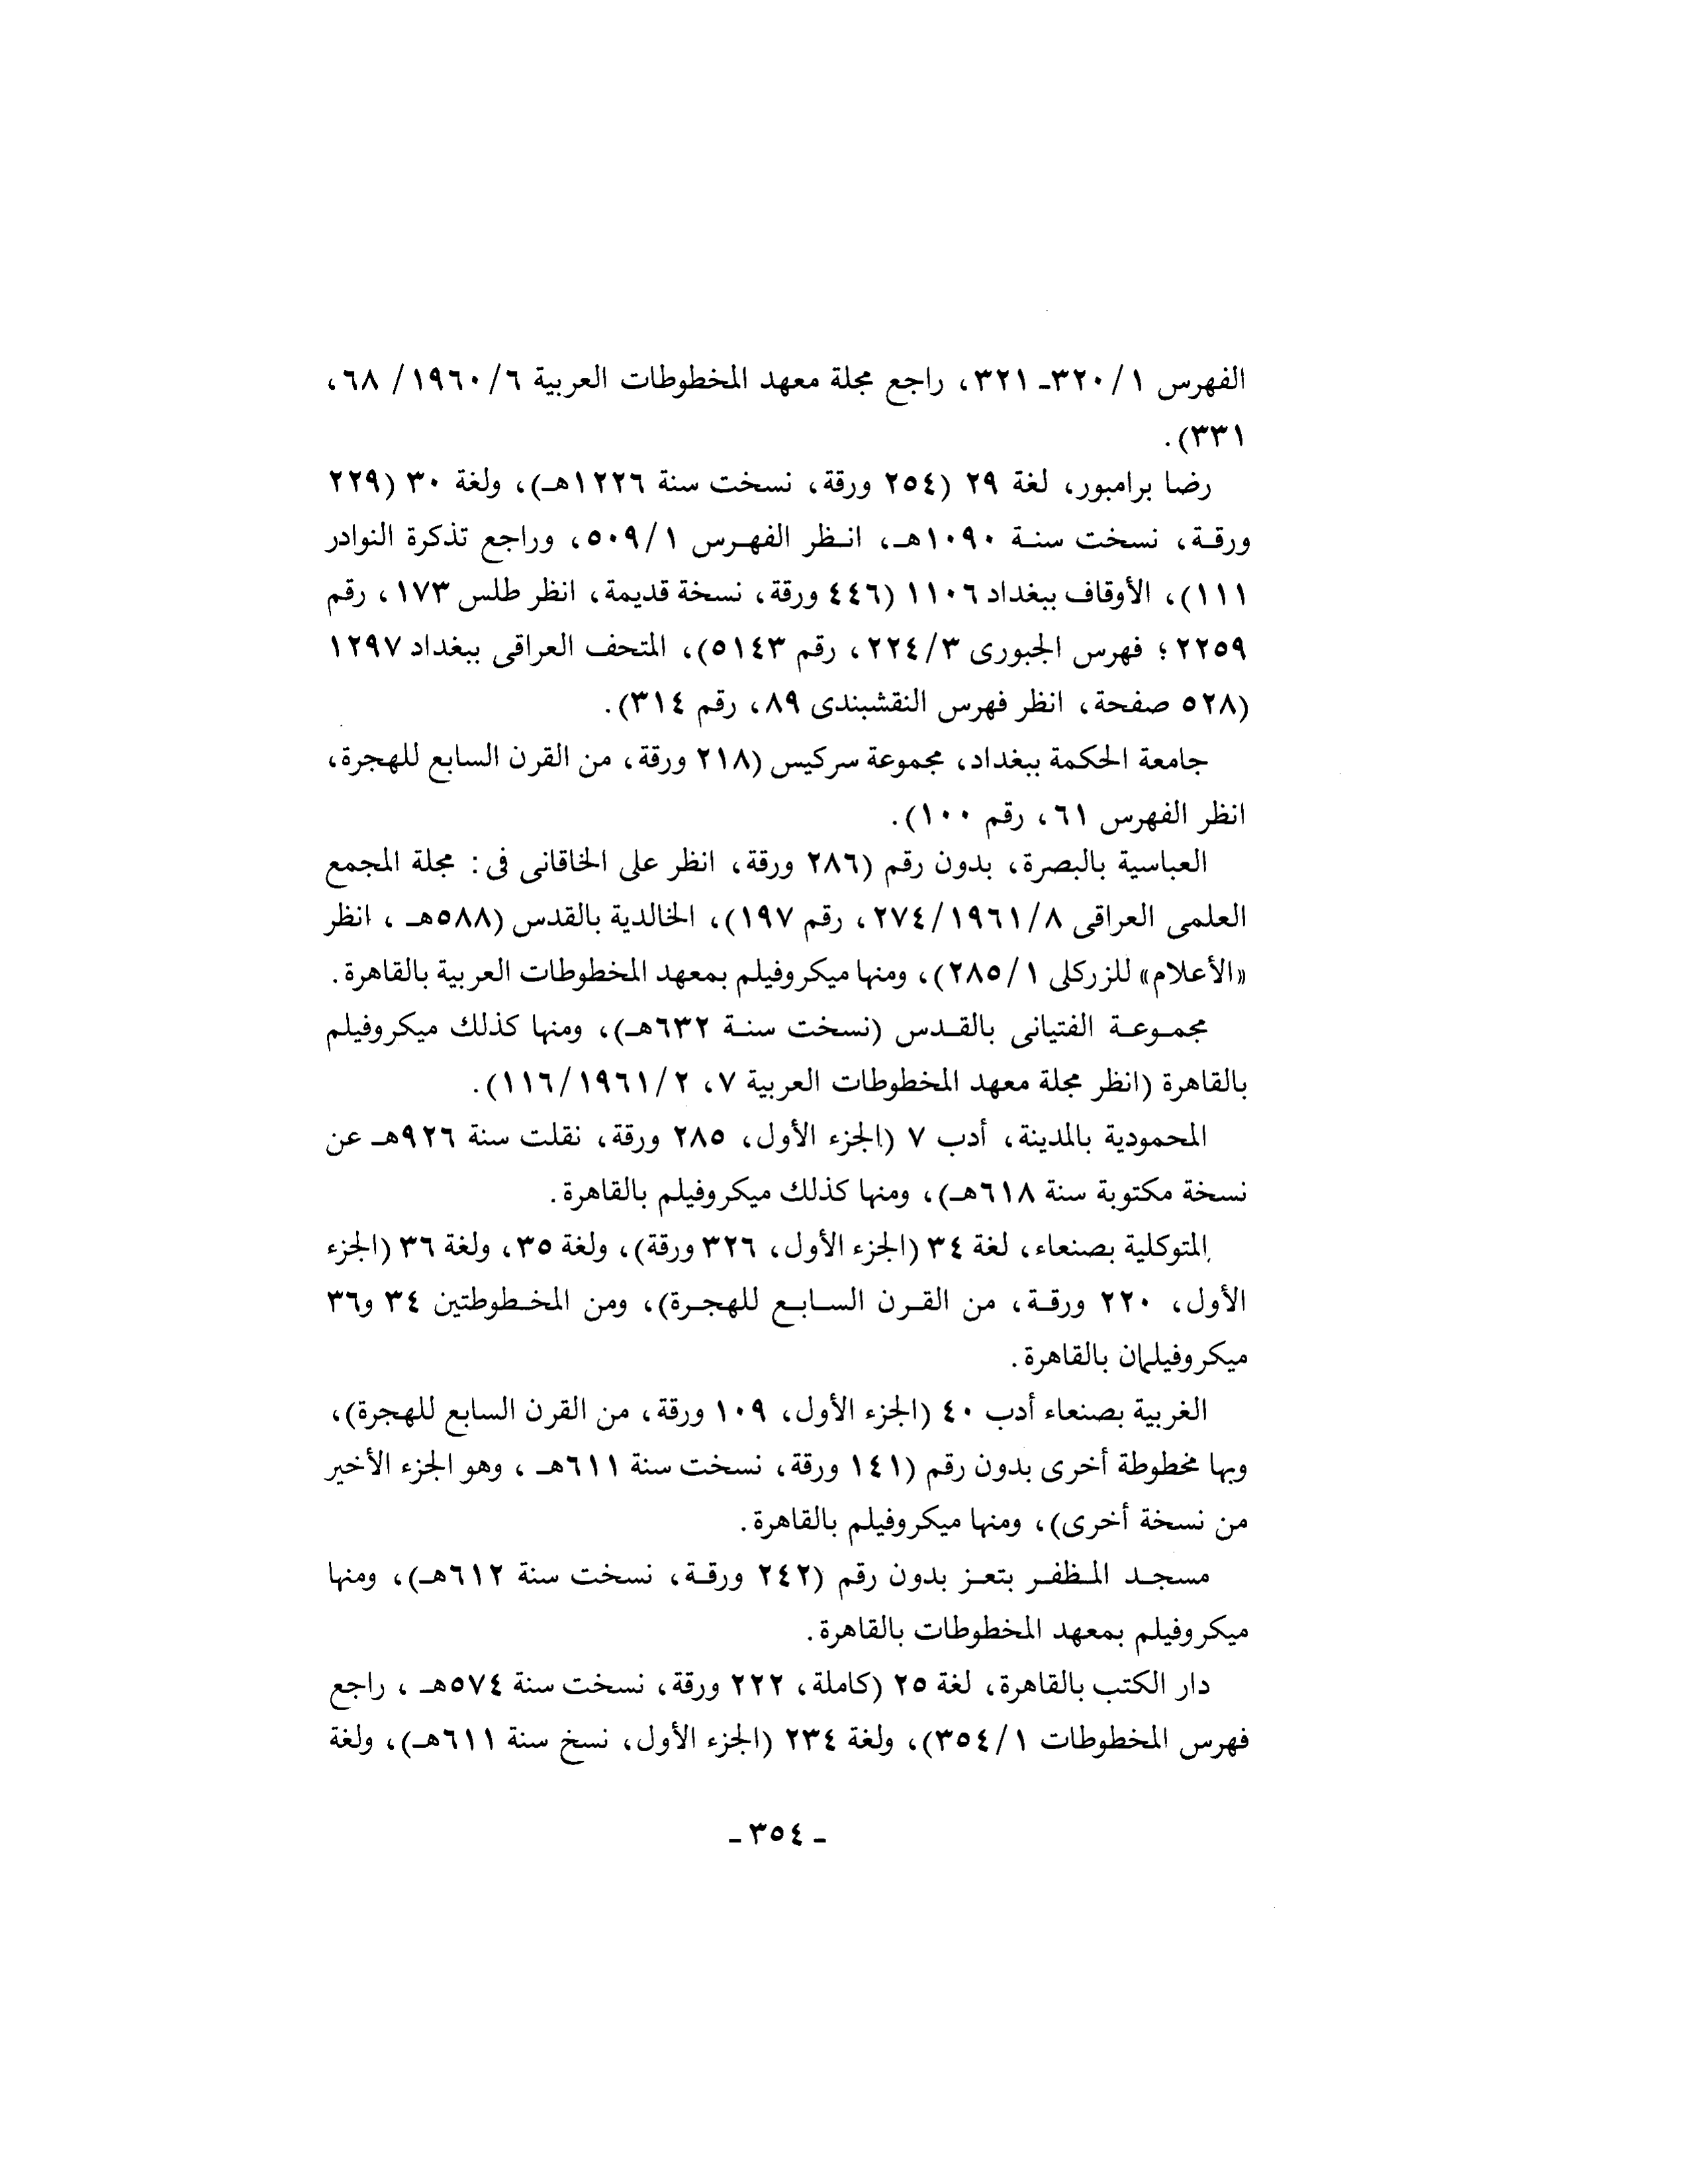 الفهرس ١/ ٣٢٠ـ ٣٢١، راجع مجلة معهد المخطوطات العربية ٦/ ١٩٦٠/ ٦٨،
٣٣١).
رضا برامبور، لغة ٢٩ (٢٥٤ ورقة، نسخت سنة ١٢٢٦هـ)، ولغة ٣٠ (٢٢٩
ورقة، نسخت سنة ١٠٩٠هـ، انظر الفهرس ١/ ٥٠٩، وراجع تذكرة النوادر
١١١)، الأوقاف ببغداد ١١٠٦ (٤٤٦ ورقة، نسخة قديمة، انظر طلس ١٧٣، رقم
٢٢٥٩؛ فهرس الجبورى ٣/ ٢٢٤، رقم ٥١٤٣)، المتحف العراقى ببغداد ١٢٩٧
(٥٢٨ صفحة، انظر فهرس النقشبندى ٨٩، رقم ٣١٤).
جامعة الحكمة ببغداد، مجموعة سركيس (٢١٨ ورقة، من القرن السابع للهجرة،
انظر الفهرس ٦١، رقم ١٠٠).
العباسية بالبصرة، بدون رقم (٢٨٦ ورقة، انظر على الخاقانى فى: مجلة المجمع
العلمى العراقى ٨/ ١٩٦١/ ٢٧٤، رقم ١٩٧)، الخالدية بالقدس (٥٨٨هـ ، انظر
«الأعلام» للزركلى ١/ ٢٨٥)، ومنها ميكروفيلم بمعهد المخطوطات العربية بالقاهرة.
مجموعة الفتيانى بالقدس (نسخت سنة ٦٣٢هـ)، ومنها كذلك ميكروفيلم
بالقاهرة (انظر مجلة معهد المخطوطات العربية ٧، ٢/ ١٩٦١/ ١١٦).
المحمودية بالمدينة، أدب ٧ (الجزء الأول، ٢٨٥ ورقة، نقلت سنة ٩٢٦هـ عن
نسخة مكتوبة سنة ٦١٨هـ)، ومنها كذلك ميكروفيلم بالقاهرة.
المتوكلية بصنعاء، لغة ٣٤ (الجزء الأول، ٣٢٦ ورقة)، ولغة ٣٥، ولغة ٣٦ (الجزء
الأول، ٢٢٠ ورقة، من القرن السابع للهجرة)، ومن المخطوطتين ٣٤ و٣٦
ميكروفيلمان بالقاهرة.
الغربية بصنعاء أدب ٤٠ (الجزء الأول، ١٠٩ ورقة، من القرن السابع للهجرة)،
وبها مخطوطة أخرى بدون رقم (١٤١ ورقة، نسخت سنة ٦١١هـ ، وهو الجزء الأخير
من نسخة أخرى)، ومنها ميكروفيلم بالقاهرة.
مسجد المظفر بتعز بدون رقم (٢٤٢ ورقة، نسخت سنة ٦١٢هـ)، ومنها
ميكروفيلم بمعهد المخطوطات بالقاهرة.
دار الكتب بالقاهرة، لغة ٢٥ (كاملة، ٢٢٢ ورقة، نسخت سنة ٥٧٤هـ ، راجع
فهرس المخطوطات ١/ ٣٥٤)، ولغة ٢٣٤ (الجزء الأول، نسخ سنة ٦١١هـ)، ولغة
ـ ٣٥٤ ـ